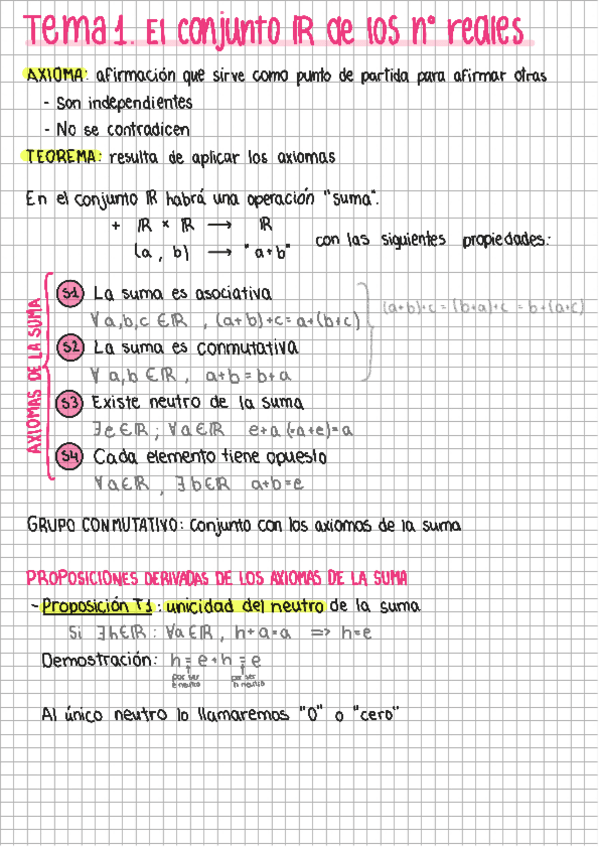 Tema 1. El conjunto ℝ de los nº reales
AXIOMA: afirmación que sirve como punto de partida para afirmar otras
- Son independientes
- No se contradicen
TEOREMA: resulta de aplicar los axiomas
En el conjunto ℝ habrá una operación "suma".
+ ℝ × ℝ ⟶ ℝ
(a, b) ⟶ "a+b" con las siguientes propiedades:
AXIOMAS DE LA SUMA
S1 La suma es asociativa
∀a,b,c ∈ ℝ , (a+b)+c = a+(b+c)
(a+b)+c = (b+a)+c = b+(a+c)
S2 La suma es conmutativa
∀ a,b ∈ ℝ , a+b = b+a
S3 Existe neutro de la suma
∃e∈ℝ ; ∀a∈ℝ e+a (=a+e)=a
S4 Cada elemento tiene opuesto
∀a∈ℝ , ∃b∈ℝ a+b=e
GRUPO CONMUTATIVO: Conjunto con los axiomas de la suma
PROPOSICIONES DERIVADAS DE LOS AXIOMAS DE LA SUMA
- Proposición T1: unicidad del neutro de la suma
Si ∃h∈ℝ : ∀a∈ℝ , h+a=a => h=e
Demostración: h = e+h = e
por ser e neutro por ser h neutro
Al único neutro lo llamaremos "0" o "cero"